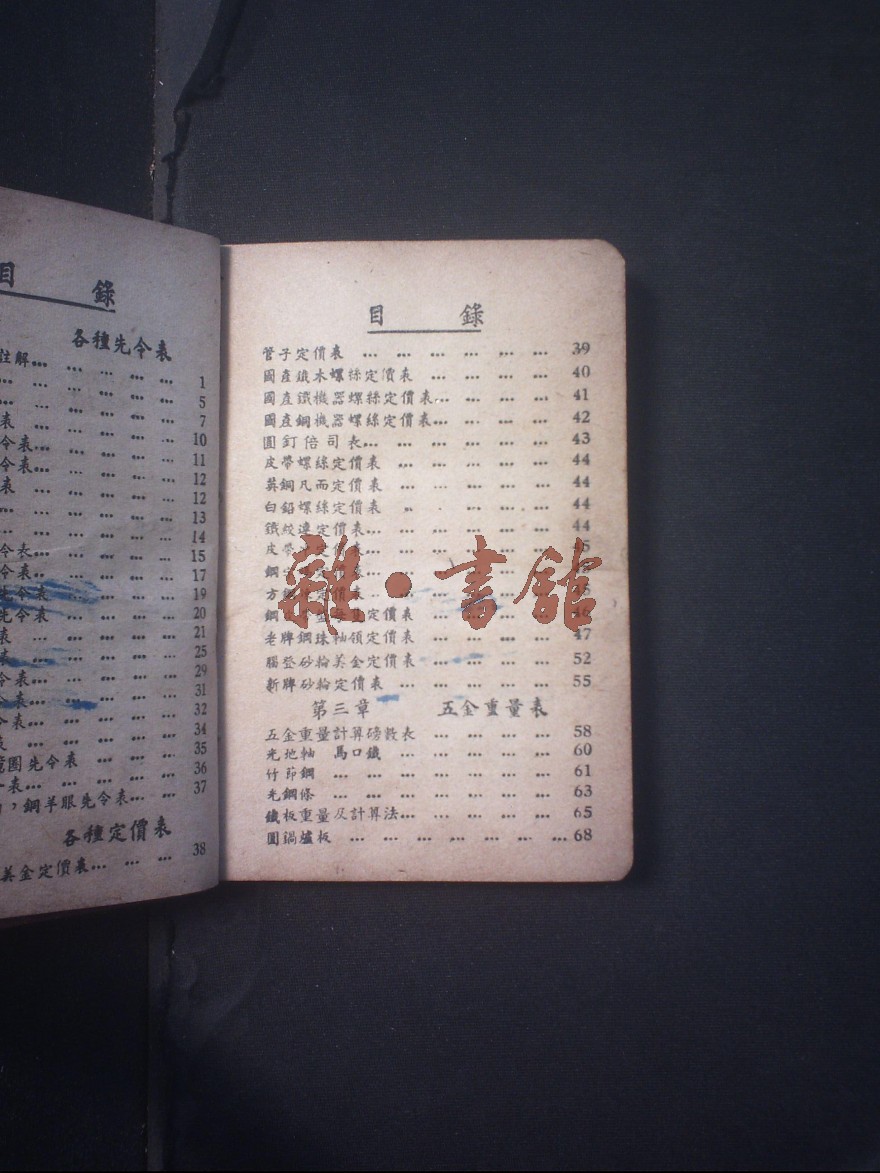 目 錄
各種先令表
註解... ... ... ... ... 1
... ... ... ... 5
... ... ... ... 7
表 ... ... ... ... 10
令表... ... ... ... 11
令表... ... ... ... 12
表 ... ... ... ... 12
... ... ... ... 13
... ... ... ... 14
令表... ... ... ... 15
令表.. ... ... ... 17
先令表 ... ... ... 19
先令表 ... ... ... 20
表 ... ... ... ... 21
表 ... ... ... ... 25
令表... ... ... ... 29
令表... ... ... ... 31
令表... ... ... ... 32
表 ... ... ... ... 34
圈先令表 ... ... ... 35
表... ... ... ... 36
,鋼羊眼先令表... ... 37
各種定價表
美金定價表... ... ... 38
目 錄
管子定價表 ... ... ... ... ... ... 39
國產鐵木螺絲定價表 ... ... ... ... 40
國產鐵機器螺絲定價表... ... ... ... 41
國產銅機器螺絲定價表... ... ... ... 42
圓釘倍司表... ... ... ... ... ... 43
皮帶螺絲定價表 ... ... ... ... ... 44
英鋼凡而定價表 ... ... ... ... ... 44
白鉛螺絲定價表 ... ... ... ... ... 44
鐵絞連定價表... ... ... ... ... ... 44
皮帶 定價表... ... ... ... ...
雜·書舘
定價表 ... ... ... ... 45
定價表 ... ... ... ... 46
老牌鋼珠軸領定價表 ... ... ... ... 47
腦登砂輪美金定價表 ... ... ... ... 52
新牌砂輪定價表 ... ... ... ... ... 55
第三章 五金重量表
五金重量計算磅數表 ... ... ... ... 58
光地軸 馬口鐵 ... ... ... ... ... 60
竹節鋼 ... ... ... ... ... ... ... 61
光鋼條 ... ... ... ... ... ... ... 63
鐵板重量及計算法... ... ... ... ... 65
圓鍋爐板 ... ... ... ... ... ... ... 68